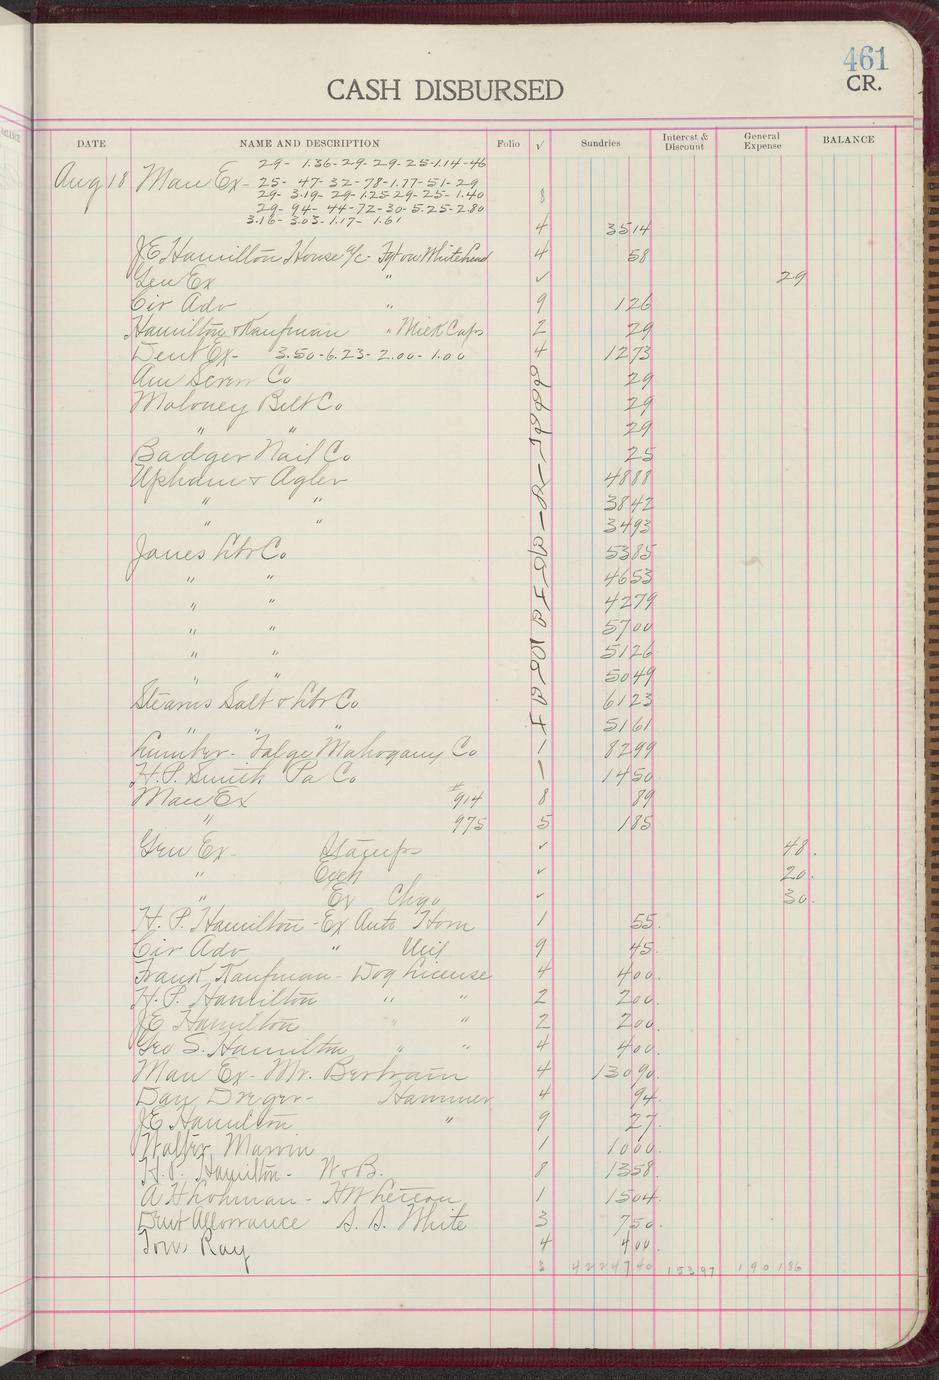 461
CR.
CASH DISBURSED
DATE NAME AND DESCRIPTION Folio √ Sundries Interest & Discount General Expense BALANCE
29- 1.36-29-29-25-1.14-46
Aug 18 Man Ex- 25- 47-32-78-1.77-51-29
29- 3.19- 29-1.25-29-25-1.40 8
29-94- 44-72-30-5.25-2.80
3.16- 3.03-1.17- 1.61 4 3514
JE Hamilton House a/c- Fgt on Whitehead 4 58
Gen Ex " ✓ 29
Cir Adv " 9 126
Hamilton & Kaufman " Milk Caps 2 29
Dent Ex- 3.50-6.23- 2.00- 1.00 4 1273
Am Screw Co 29
Maloney Belt Co 29
" " 29
Badger Nail Co 25
Upham & Agler 4888
" " 3842
" " 3493
Janes Lbr Co 5385
" " 4653
" " 4279
" " 5700
" " 5126
" " 5049
Stearns Salt & Lbr Co 6123
" " 5161
Lumber- Talge Mahogany Co 8299
H.P. Smith Pa Co 1450
Man Ex #914 8 89
" 975 5 185
Gen Ex- Stamps ✓ 48.
" Exch ✓ 20.
" Ex Chgo ✓ 30.
H. P. Hamilton - Ex Auto Horn 1 55.
Cir Adv " 9 45.
Frank Kaufman - Dog License 4 400.
H. P. Hamilton " " 2 200.
JE Hamilton " " 2 200.
Geo S. Hamilton " " 4 400.
Man Ex- Mr. Bertram 4 13090.
Dan Dreger- Hammer 4 94.
JE Hamilton " 9 27.
Walter Marvin 1 1000.
H. P. Hamilton- W & B. 8 1358.
A H Lohman - 1 1504.
Dent Allowance S. S. White 3 750.
Tom Ray 4 400.
3 4224740 15397 190186